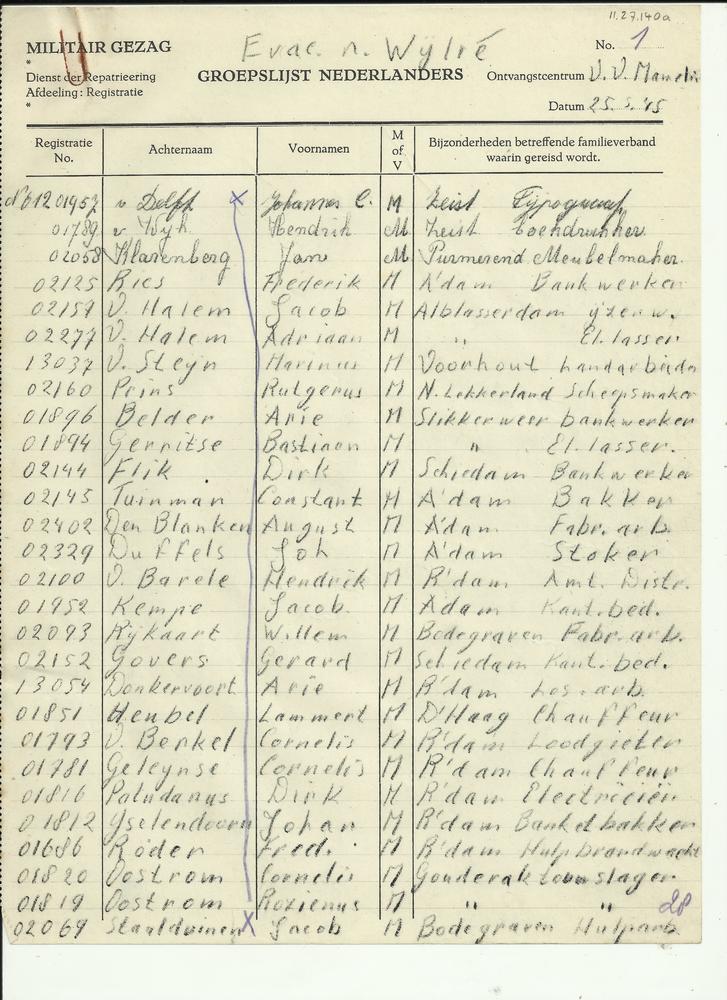 11.27.140a
MILITAIR GEZAG
Evac. n. Wijlré
No. 1
*
Dienst der Repatrieering
GROEPSLIJST NEDERLANDERS
Ontvangstcentrum V.V. Mamelis
Afdeeling: Registratie
*
Datum 25.5.'45
Registratie No. Achternaam Voornamen M of V Bijzonderheden betreffende familieverband waarin gereisd wordt.
01957 v Delft x Johannes C. M Zeist Typograaf
01789 v. Wijk Hendrik M Zeist boekdrukker
02058 Klarenberg Jan M Purmerend Meubelmaker
02125 Ries Frederik M A'dam Bankwerker
02159 V. Halem Jacob M Alblasserdam ijzerw.
02277 V. Halem Adriaan M " El. lasser
13037 V. Steyn Marinus M Voorhout Landarbeider
02160 Prins Rutgerus M N. Lekkerland Scheepsmaker
01896 Belder Arie M Slikkerveer bankwerker
01894 Gerritse Bastiaan M " El. lasser.
02144 Flik Dirk M Schiedam Bankwerker
02145 Tuinman Constant M A'dam Bakker
02402 Den Blanken August M A'dam Fabr. arb.
02329 Duffels Joh M A'dam Stoker
02100 V. Barele Hendrik M R'dam Amt. Distr.
01952 Kempe Jacob M Adam Kant. bed.
02093 Rijkaart Willem M Bodegraven Fabr. arb.
02152 Govers Gerard M Schiedam Kant. bed.
13054 Donkervoort Arie M R'dam Los. arb.
01851 Heubel Lammert M D'Haag Chauffeur
01793 V. Berkel Cornelis M R'dam Loodgieter
01781 Geleynse Cornelis M R'dam Chauffeur
01816 Paludanus Dirk M R'dam Electriciën
01812 Yselendoorn Johan M R'dam Banketbakker
01686 Röder Fred. M R'dam Hulpbrandwacht
01820 Oostrom Cornelis M Gouderak touwslager
01819 Oostrom Rozienus M " " 28
02069 Staalduinen x Jacob M Bodegraven Hulparb.